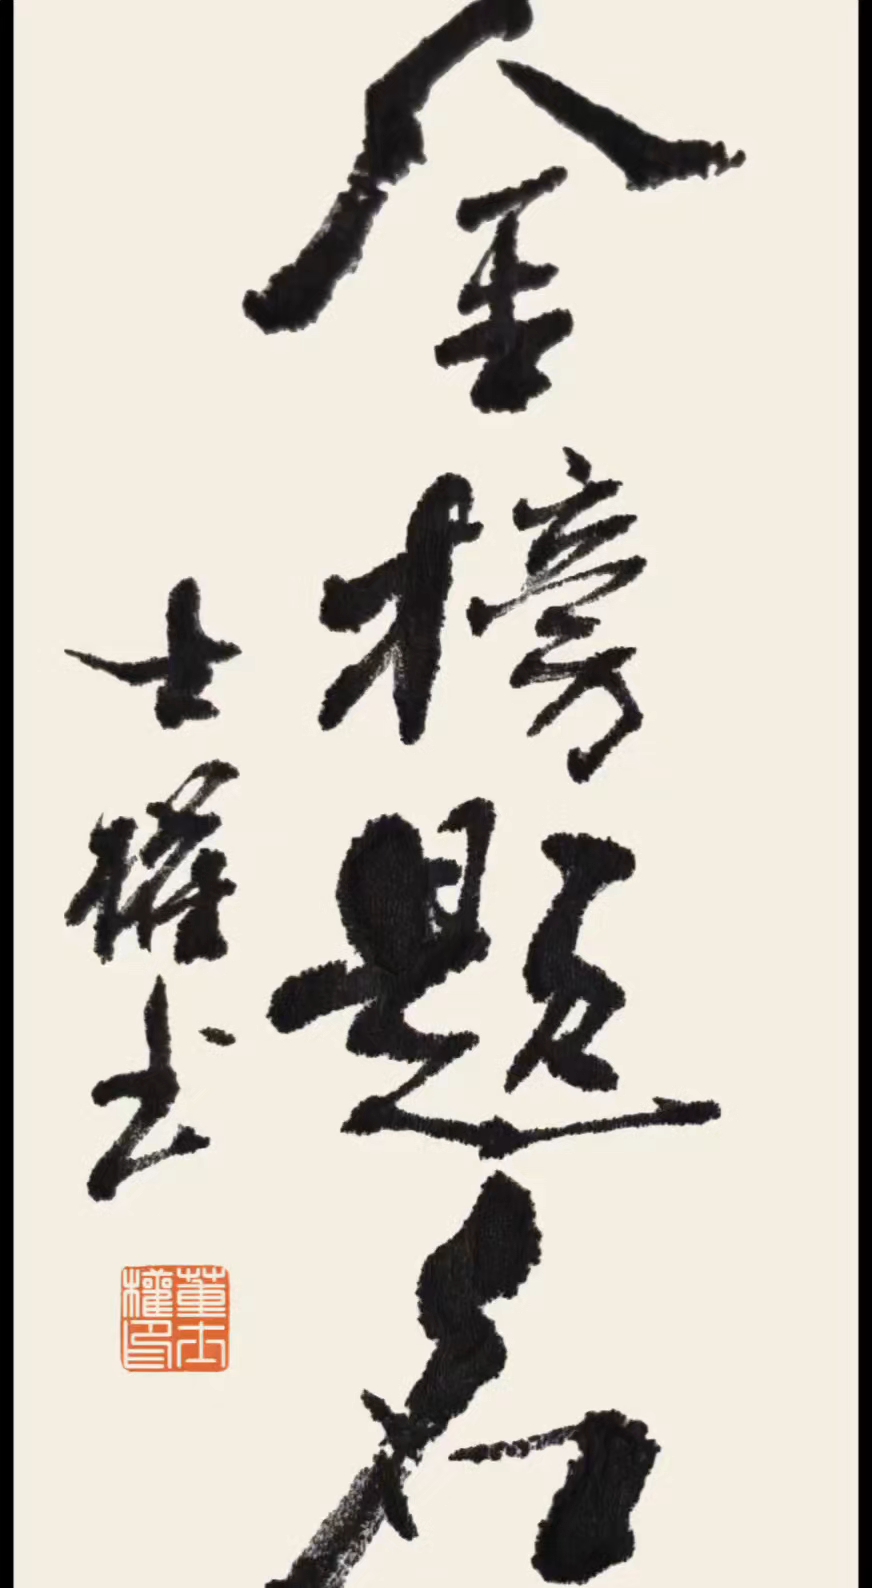 金榜题名
士權书
董士權印